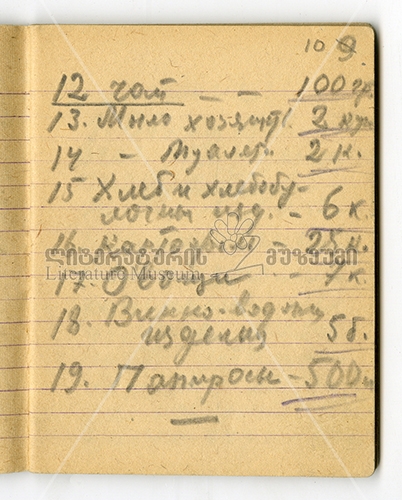 10 9
12 чай — — 100 гр.
13. Мыло хозяйст. 2 кус
14 — Туалет. 2 к.
15 Хлеб и хлебобу-
лочны изд. - 6 к.
16. картофель - 25 к.
ლიტერატურის მუზეუმი
Literature Museum
17. Овощи - 7 к.
18. Винно-водочн
изделия 5 б.
19. Папиросы - 500 ш